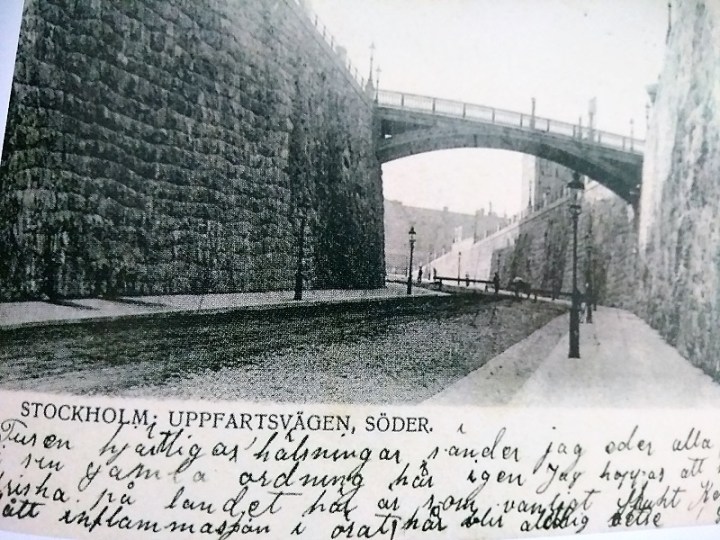 STOCKHOLM; UPPFARTSVÄGEN, SÖDER.
Tusen hjärtligas hälsningar sänder jag eder alla
i sin gamla ordning här igen Jag hoppas att
friska på landet här är som vanligt
att inflammasjon i örat, här blir aldrig